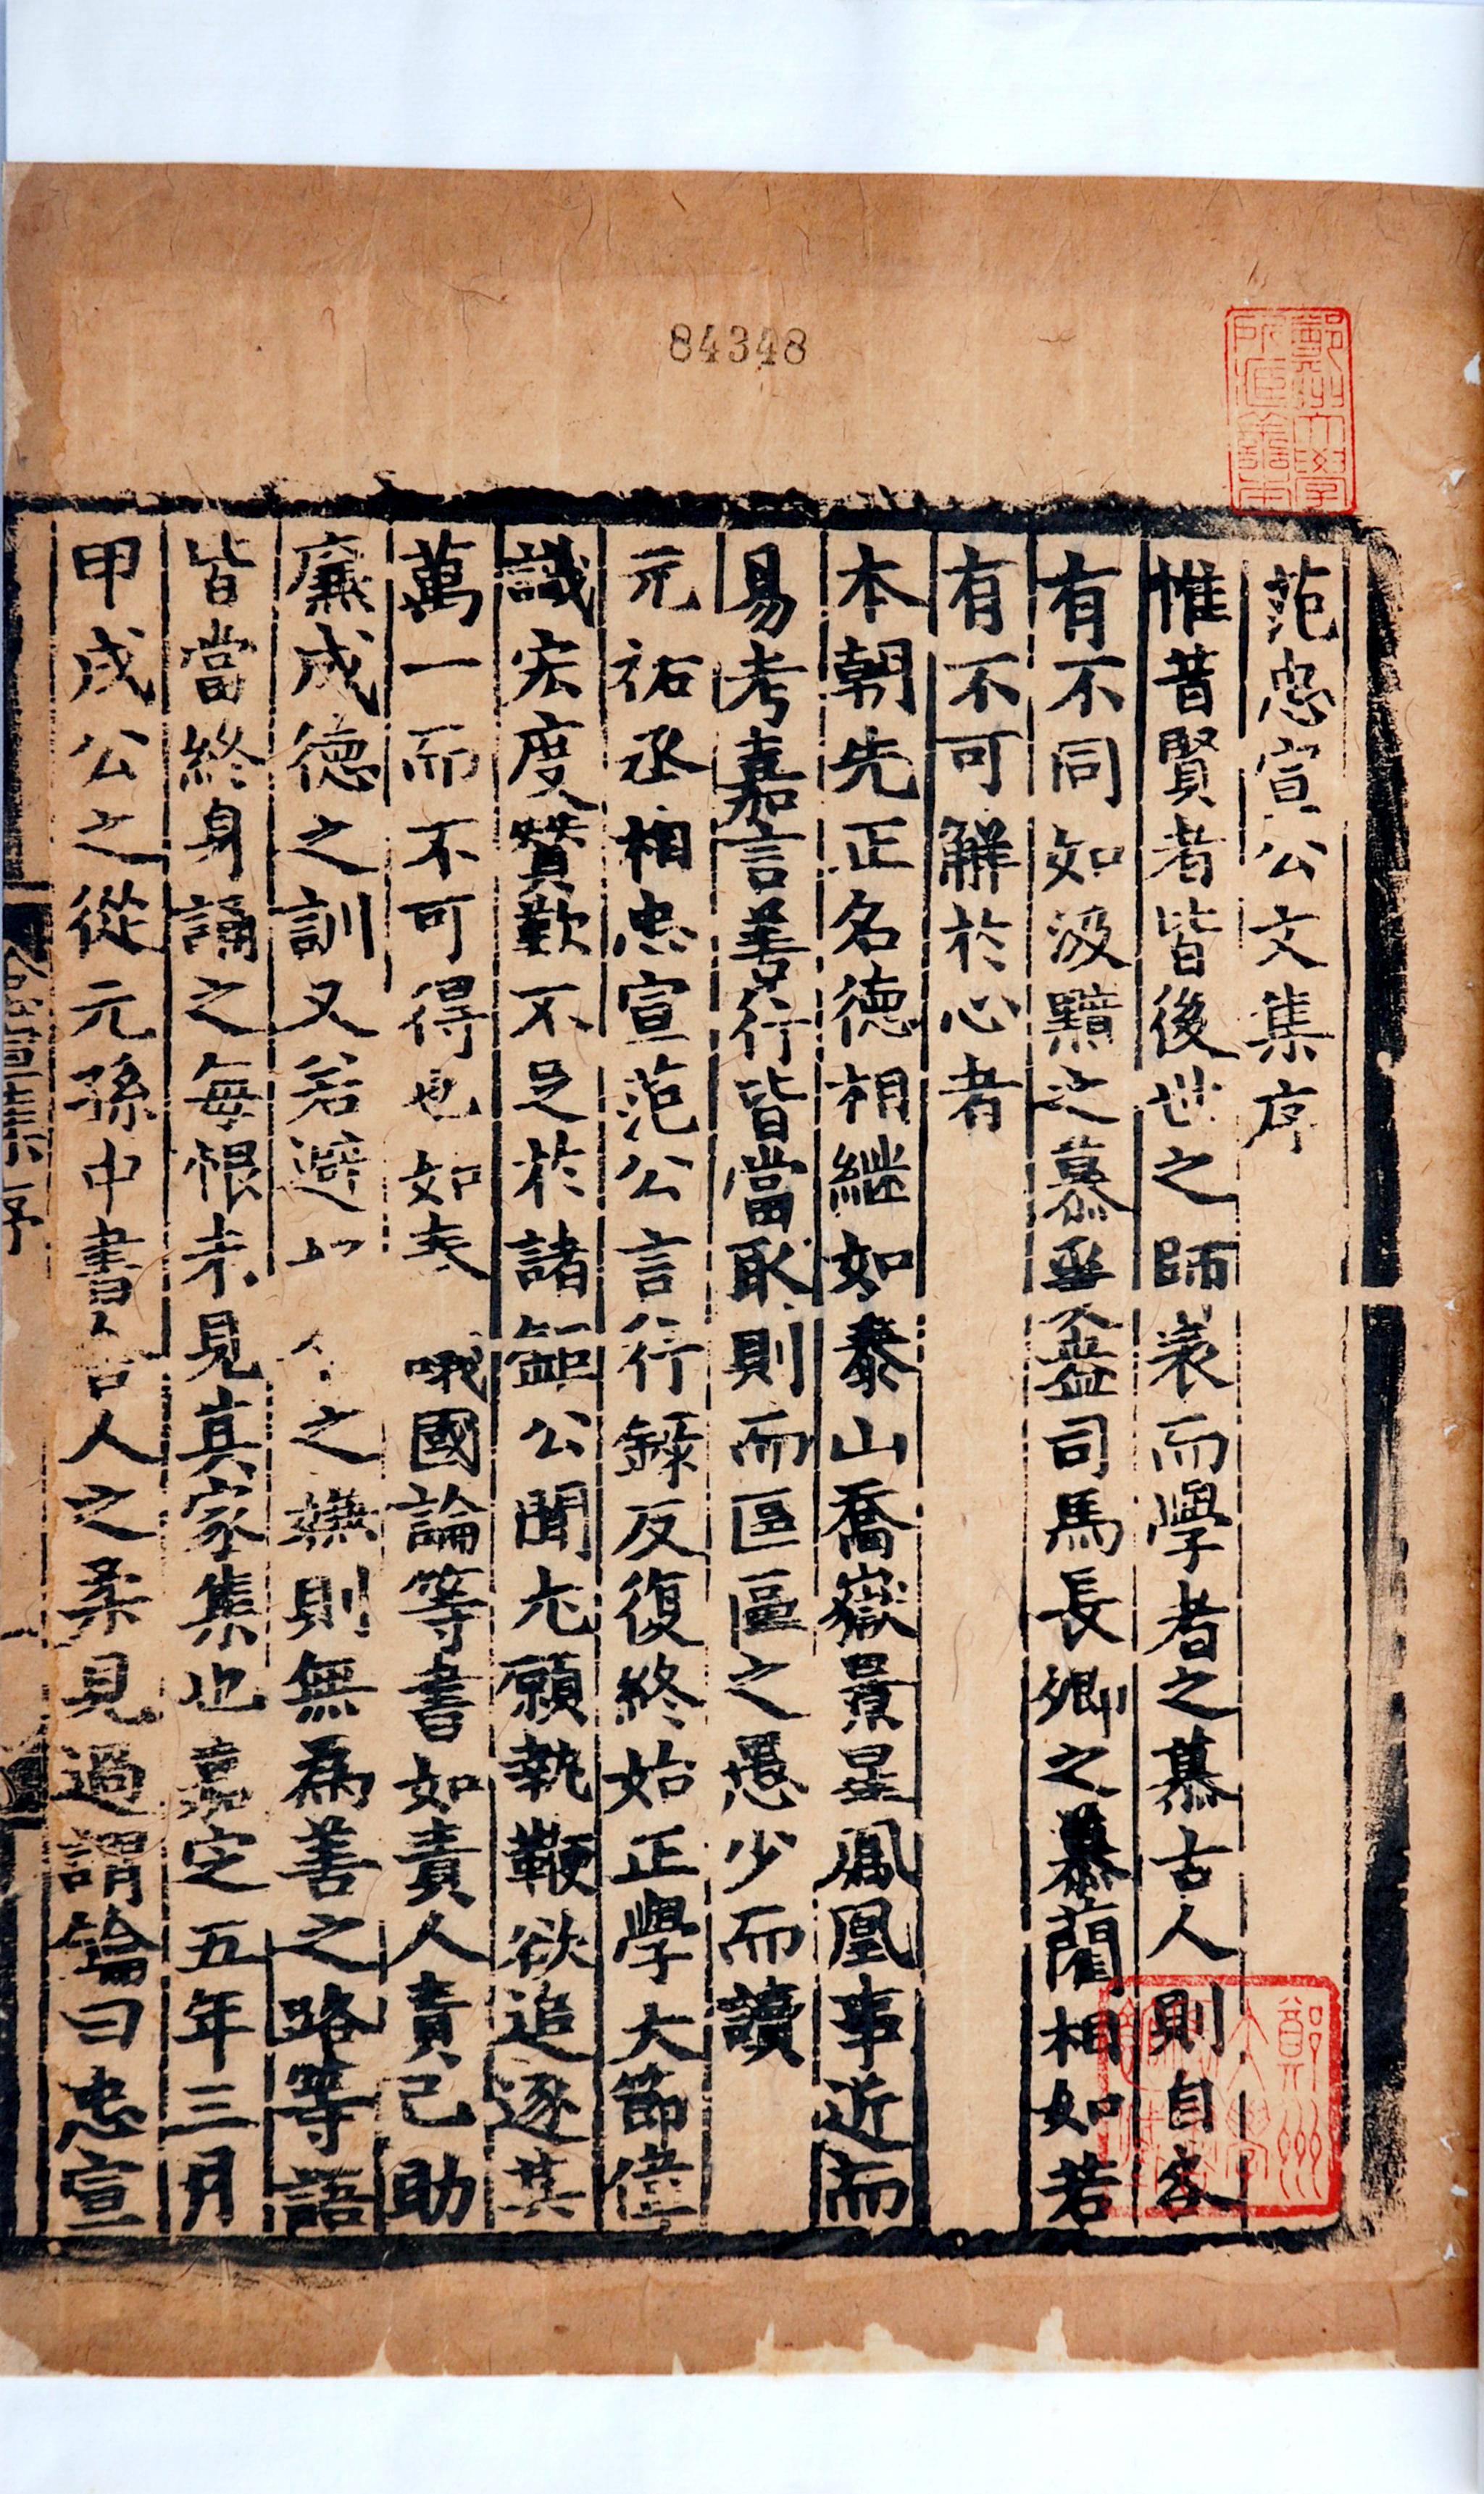 84348
鄭州大學
所藏善本
范忠宣公文集序
惟昔賢者皆後世之師表而學者之慕古人則自各
有不同如汲黯之慕爰盎司馬長卿之慕藺相如若
有不可解於心者
本朝先正名德相繼如泰山喬嶽景星鳳凰事近而
易考嘉言善行皆當取則而區區之愚少而讀
元祐丞相忠宣范公言行錄反復終始正學大節偉
識宏度贊歎不足於諸鉅公間尤願執鞭欲追逐其
萬一而不可得也如奏 國論等書如責人責己助
廉成德之訓又若避 之嫌則無為善之路等語
皆當終身誦之每恨未見其家集也嘉定五年三月
甲戌公之從元孫中書舍人之柔見過謂鑰曰忠宣
鄭州大學